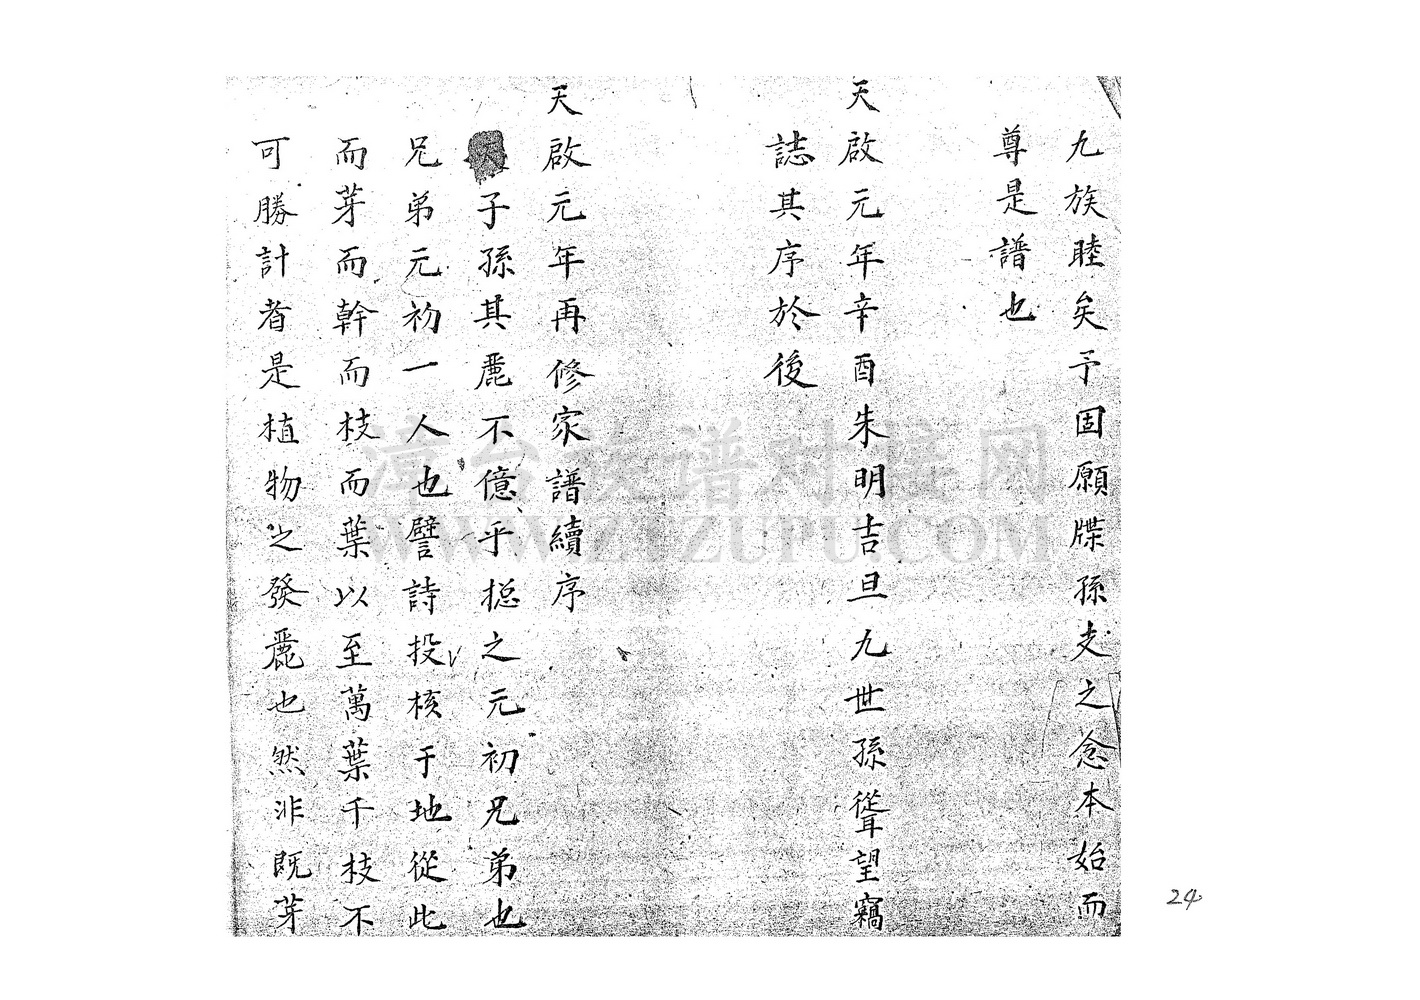 九族睦矣予固願牒孫支之念本始而
尊是譜也
天啟元年辛酉朱明吉旦九世孫聳望竊
誌其序於後
天啟元年再修家譜續序
子孫其麗不億乎揔之元初兄弟也
兄弟元初一人也譬詩投核于地從此
而芽而幹而枝而葉以至萬葉千枝不
可勝計者是植物之發麗也然非既芽
漳台族谱对接网
WWW.ZTZUPU.COM
24